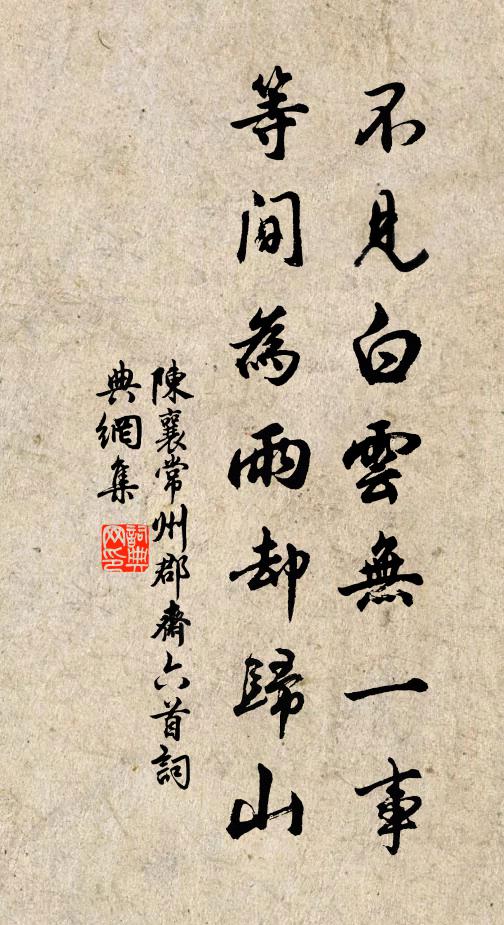 不見白雲無一事
等閒為雨却歸山
陳襄常州郡齋六首詞
典網集
詞典网印